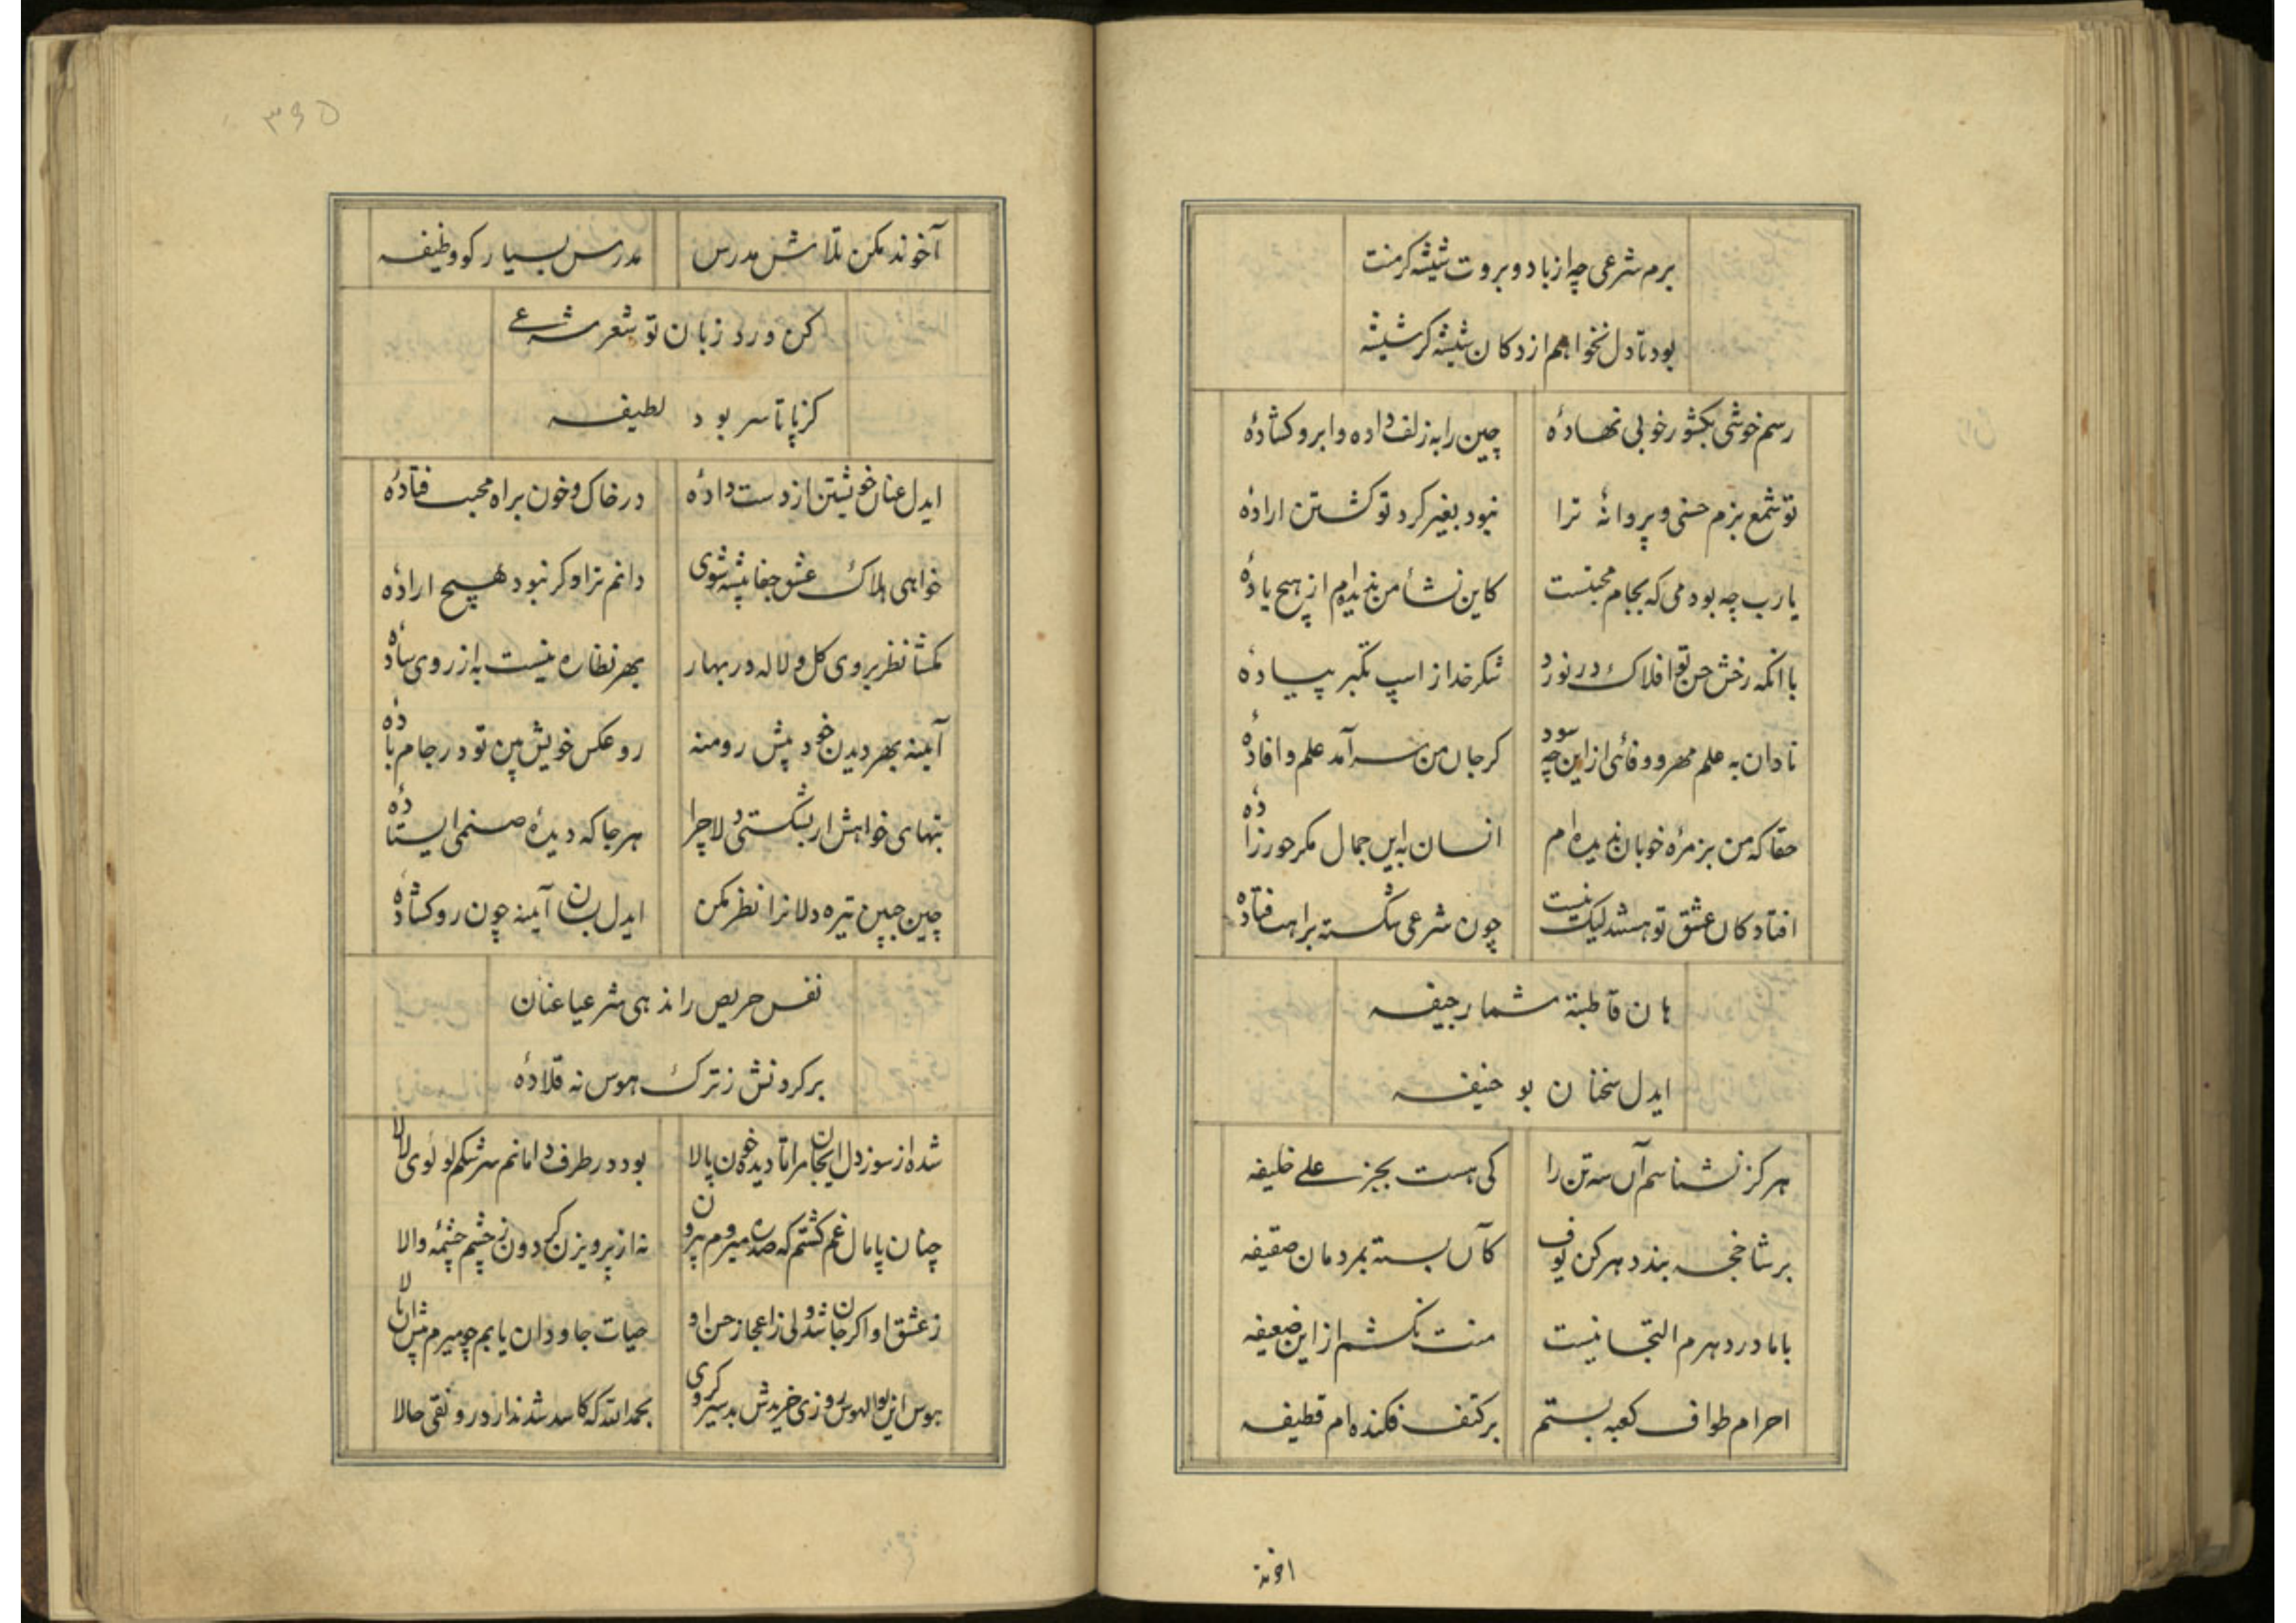 برم شرعی چه از باد و بروت شیشه کر منت
بود تا دل نخواهم از دکان شیشه کر شیشه
رسم خوشی بکشور خوبی نهادهٔ چین را به زلف داده و ابرو کشادهٔ
تو شمع بزم حسنی و پروانهٔ ترا نبود بغیر کرد تو کشتن ارادهٔ
یارب چه بود می که بجام محبتست کاین نشأ من ندیده‌ام از هیچ بادهٔ
با آنکه رخش حسن تو افلاک در نورد شکر خدا ز اسپ تکبر پیادهٔ
نادان به علم مهر و وفائی از این چه سود کر جان من سرآمد علم و افادهٔ
حقا که من بزمرهٔ خوبان ندیده‌ام انسان به این جمال مکر حورزادهٔ
افتاد کان عشق تو هستند لیک نیست چون شرعی شکسته براهت فتادهٔ
هان قاطبة شمار جیفه
ایدل سخنان بو حنیفه
هرکز نشناسم آن سه تن را کی هست بجز علی خلیفه
بر شاخچه بندد هر کن یوف کآن بسته بمردمان صقیفه
با مادر دهرم التجا نیست منت نکشم از این ضعیفه
احرام طواف کعبه بستم بر کتف فکنده‌ام قطیفه
اخوند
۳۶۵
آخوند مکن تلاش مدرس مدرس بسیار کو وظیفه
کن ورد زبان تو شعر شرعی
کز پا تا سر بود لطیفه
ایدل عنان خویشتن از دست دادهٔ در خاک و خون براه محبت فتادهٔ
خواهی هلاک عشق جفا پیشه شوی دانم ترا و کر نبود هیچ ارادهٔ
مکشا نظر بروی کل و لاله در بهار بهر نظاره نیست به از روی سادهٔ
آیینه بهر دیدن خود پیش رو منه رو عکس خویش بین تو در جام بادهٔ
بتهای خواهش ار بشکستی دلا چرا هر جا که دیدهٔ صنمی ایستادهٔ
چین جبین تیره دلانرا نظر مکن ایدل بسان آیینه چون رو کشادهٔ
نفس حریص را ندهی شرعیا عنان
بر کردنش ز ترک هوس نه قلادهٔ
شده از سوز دل اینجا مرا تا دیده خون پالا بود در طرف دامانم سرشکم لولوی لالا
چنان پامال غم کشتم که صد ره میروم بیرون نه از پرویزن کردون ز چشم چشمه والا
ز عشق او اکر جان شد ولی ز اعجاز حسن او حیات جاودان یابم چو میرم پیش آن بالا
هوس این بوالهوس روزی خریدش بد سیر کروی بحمدالله که کاسد شد ندارد رونقی حالا